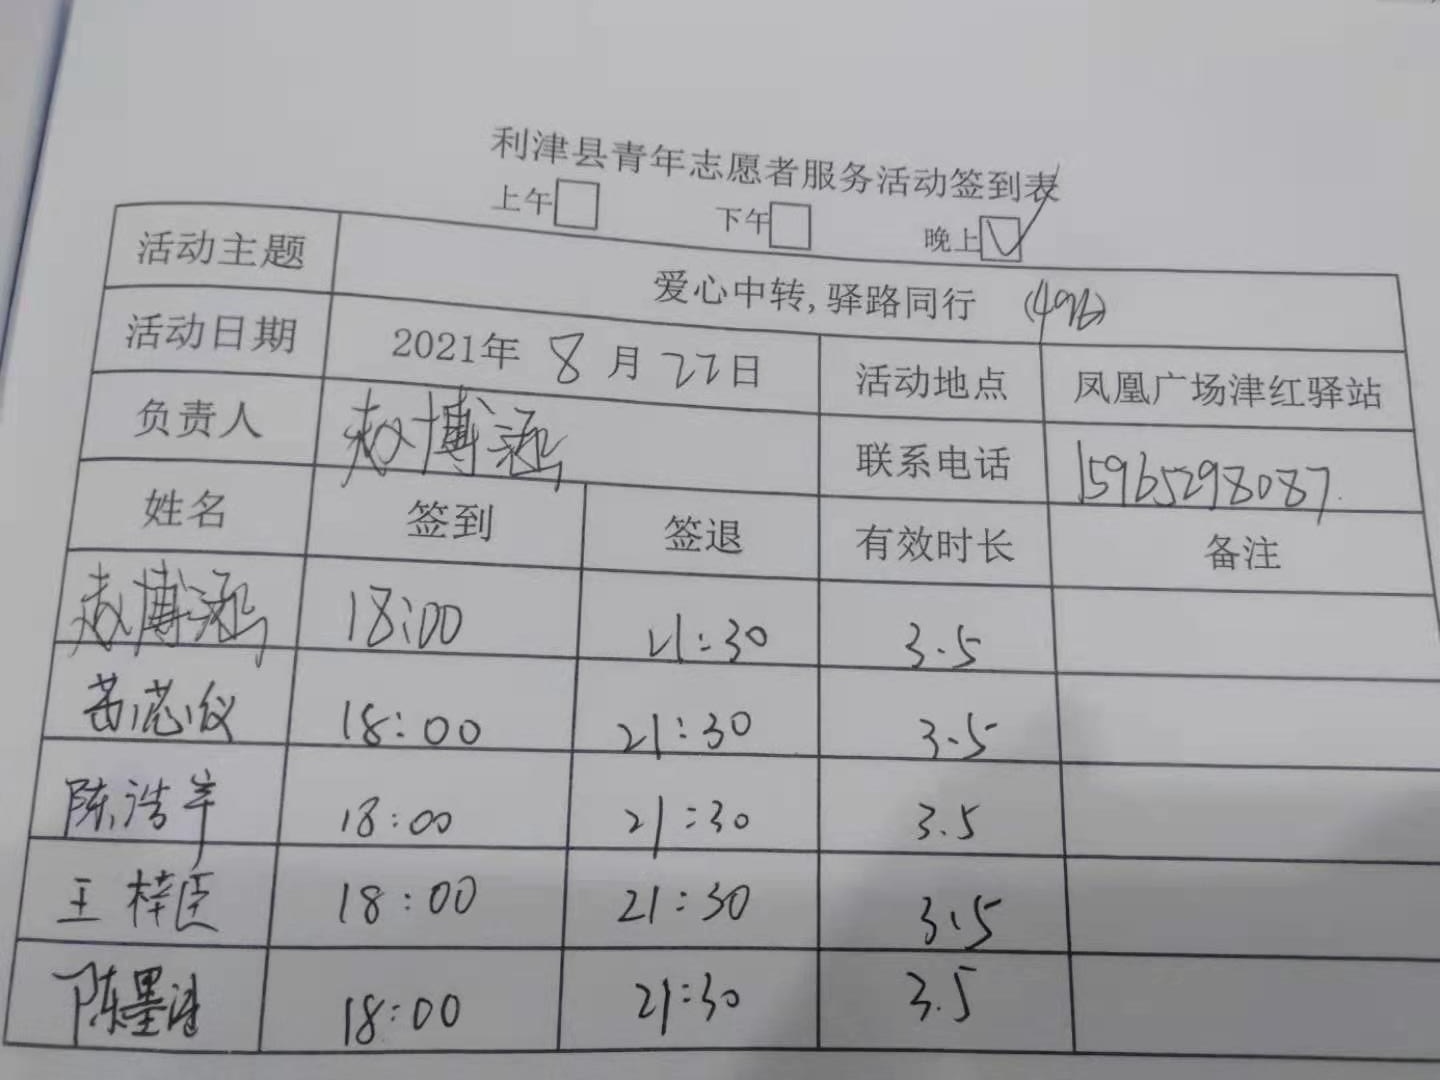 利津县青年志愿者服务活动签到表
上午 下午 晚上
活动主题 爱心中转,驿路同行 (496)
活动日期 2021年 8 月 22日 活动地点 凤凰广场津红驿站
负责人 赵博涵 联系电话 15965298087
姓名 签到 签退 有效时长 备注
赵博涵 18:00 21:30 3.5
18:00 21:30 3.5
陈浩宇 18:00 21:30 3.5
王梓臣 18:00 21:30 3.5
陈墨涵 18:00 21:30 3.5